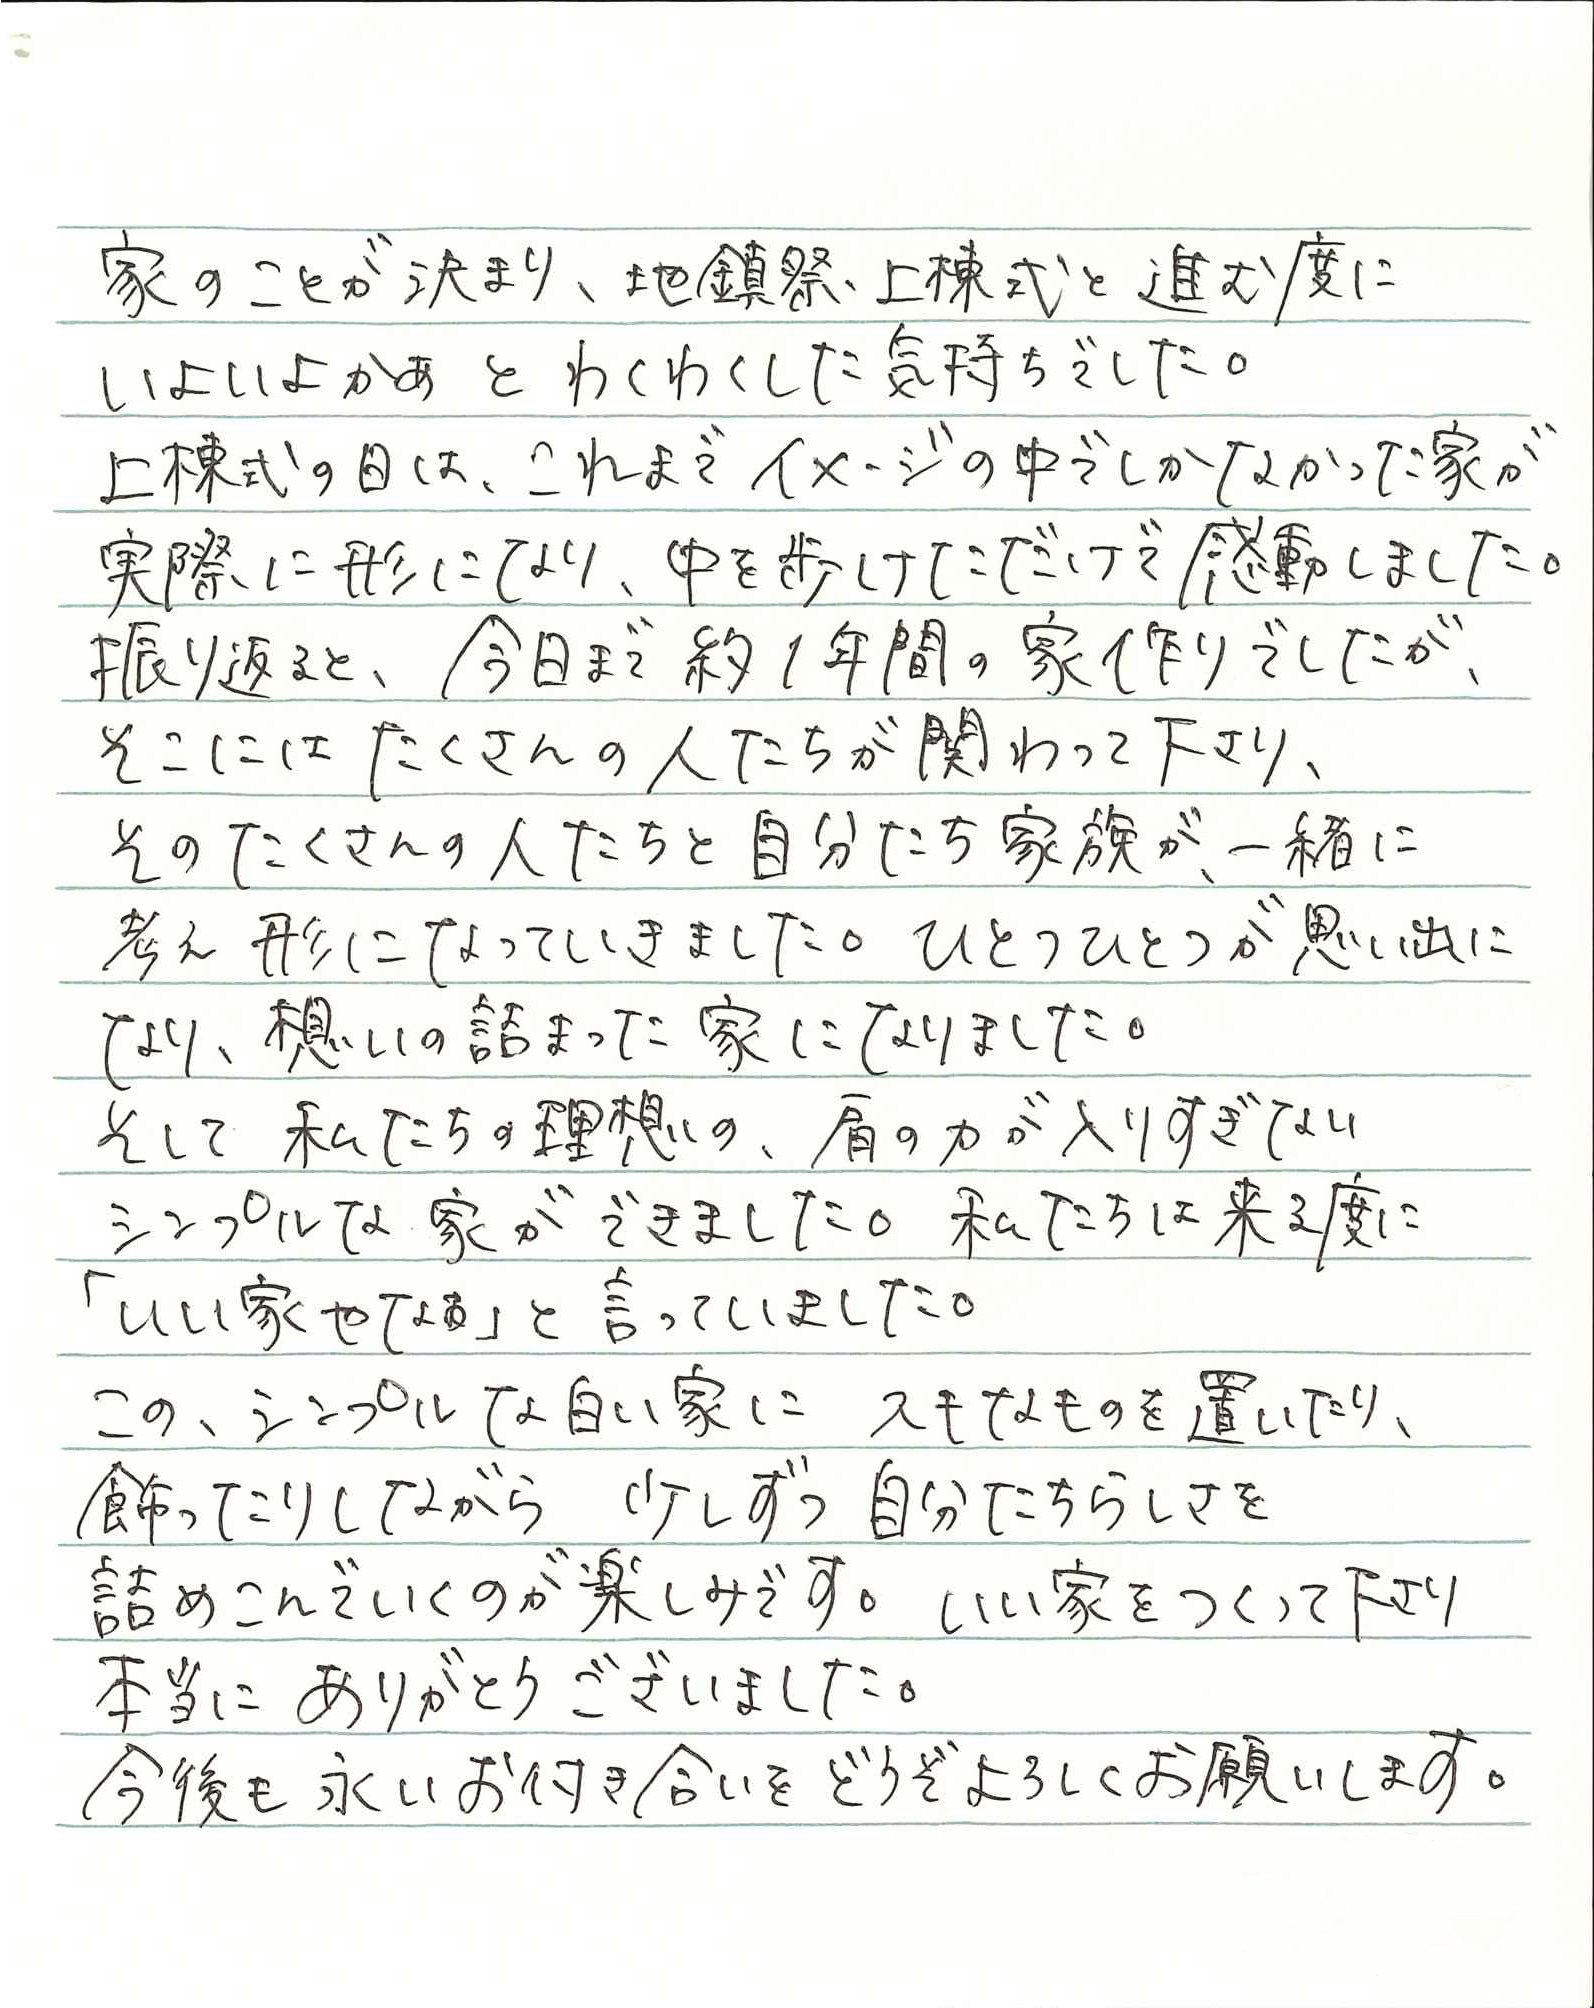 家のことが決まり、地鎮祭、上棟式と進む度に
いよいよかぁとわくわくした気持ちでした。
上棟式の日は、これまでイメージの中でしかなかった家が
実際に形になり、中を歩けただけで感動しました。
振り返ると、今日まで約1年間の家作りでしたが、
そこにはたくさんの人たちが関わって下さり、
そのたくさんの人たちと自分たち家族が、一緒に
考え形になっていきました。ひとつひとつが思い出に
なり、想いの詰まった家になりました。
そして私たちの理想の、肩の力が入りすぎない
シンプルな家ができました。私たちは来る度に
「いい家やなぁ」と言っていました。
この、シンプルな白い家にスキなものを置いたり、
飾ったりしながら少しずつ自分たちらしさを
詰めこんでいくのが楽しみです。いい家をつくって下さり
本当にありがとうございました。
今後も永いお付き合いをどうぞよろしくお願いします。